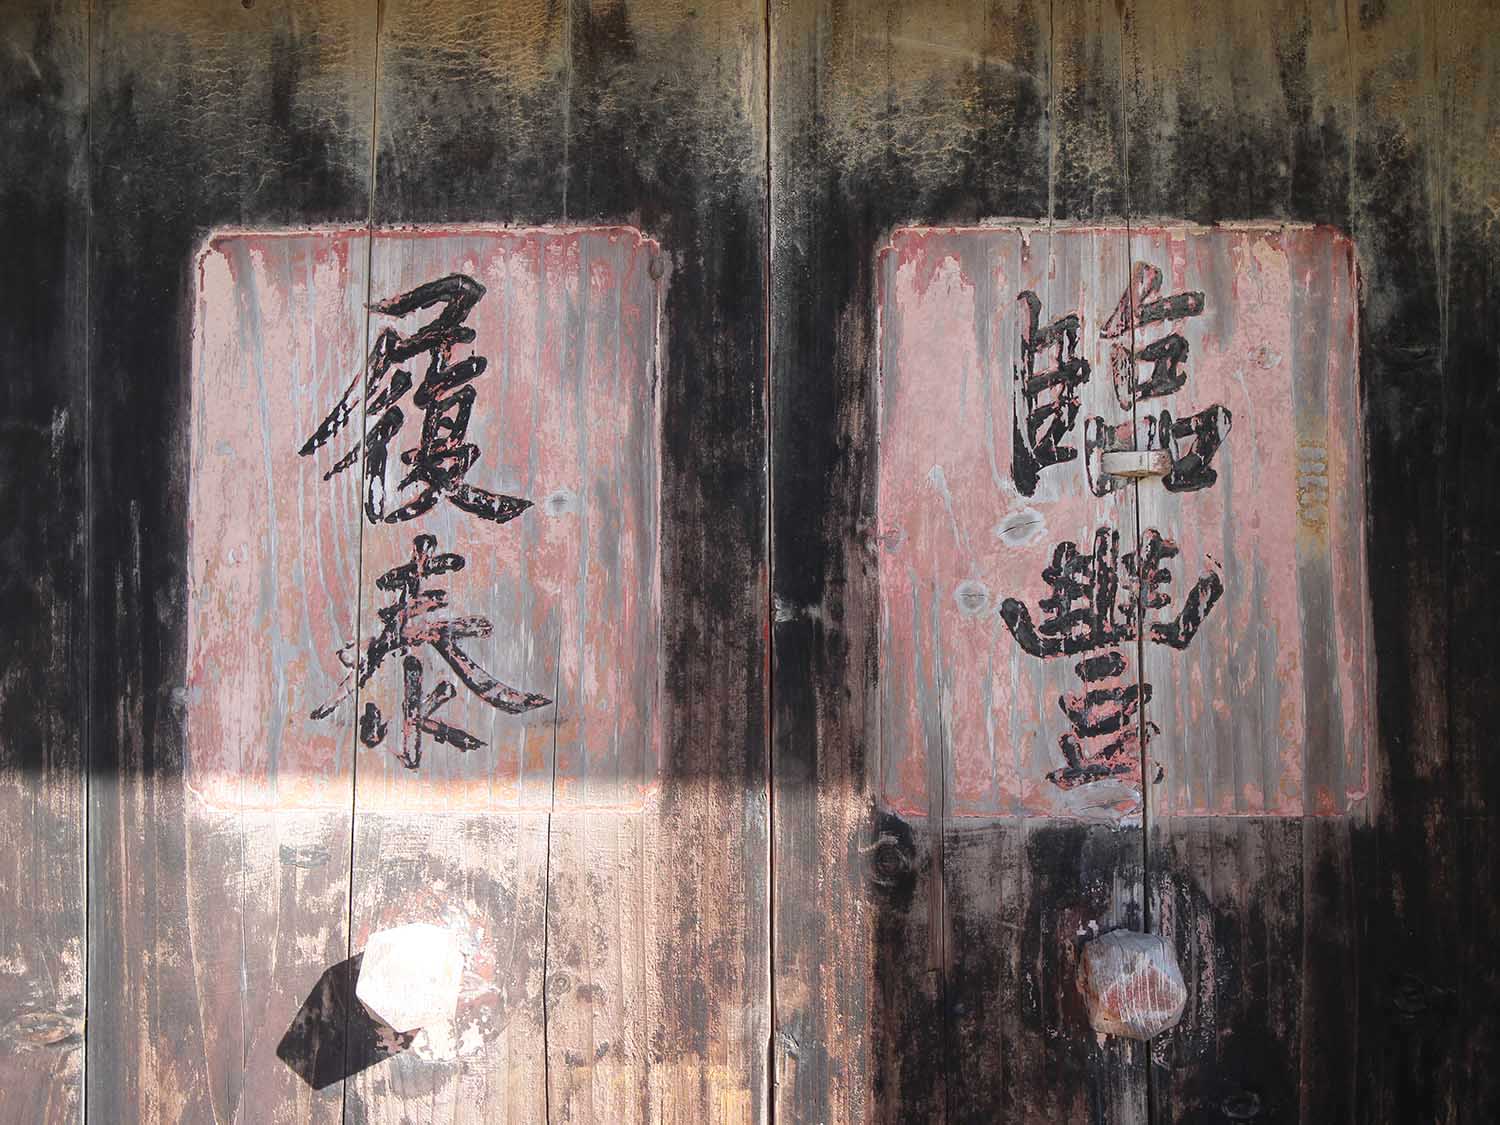 臨豐
履泰